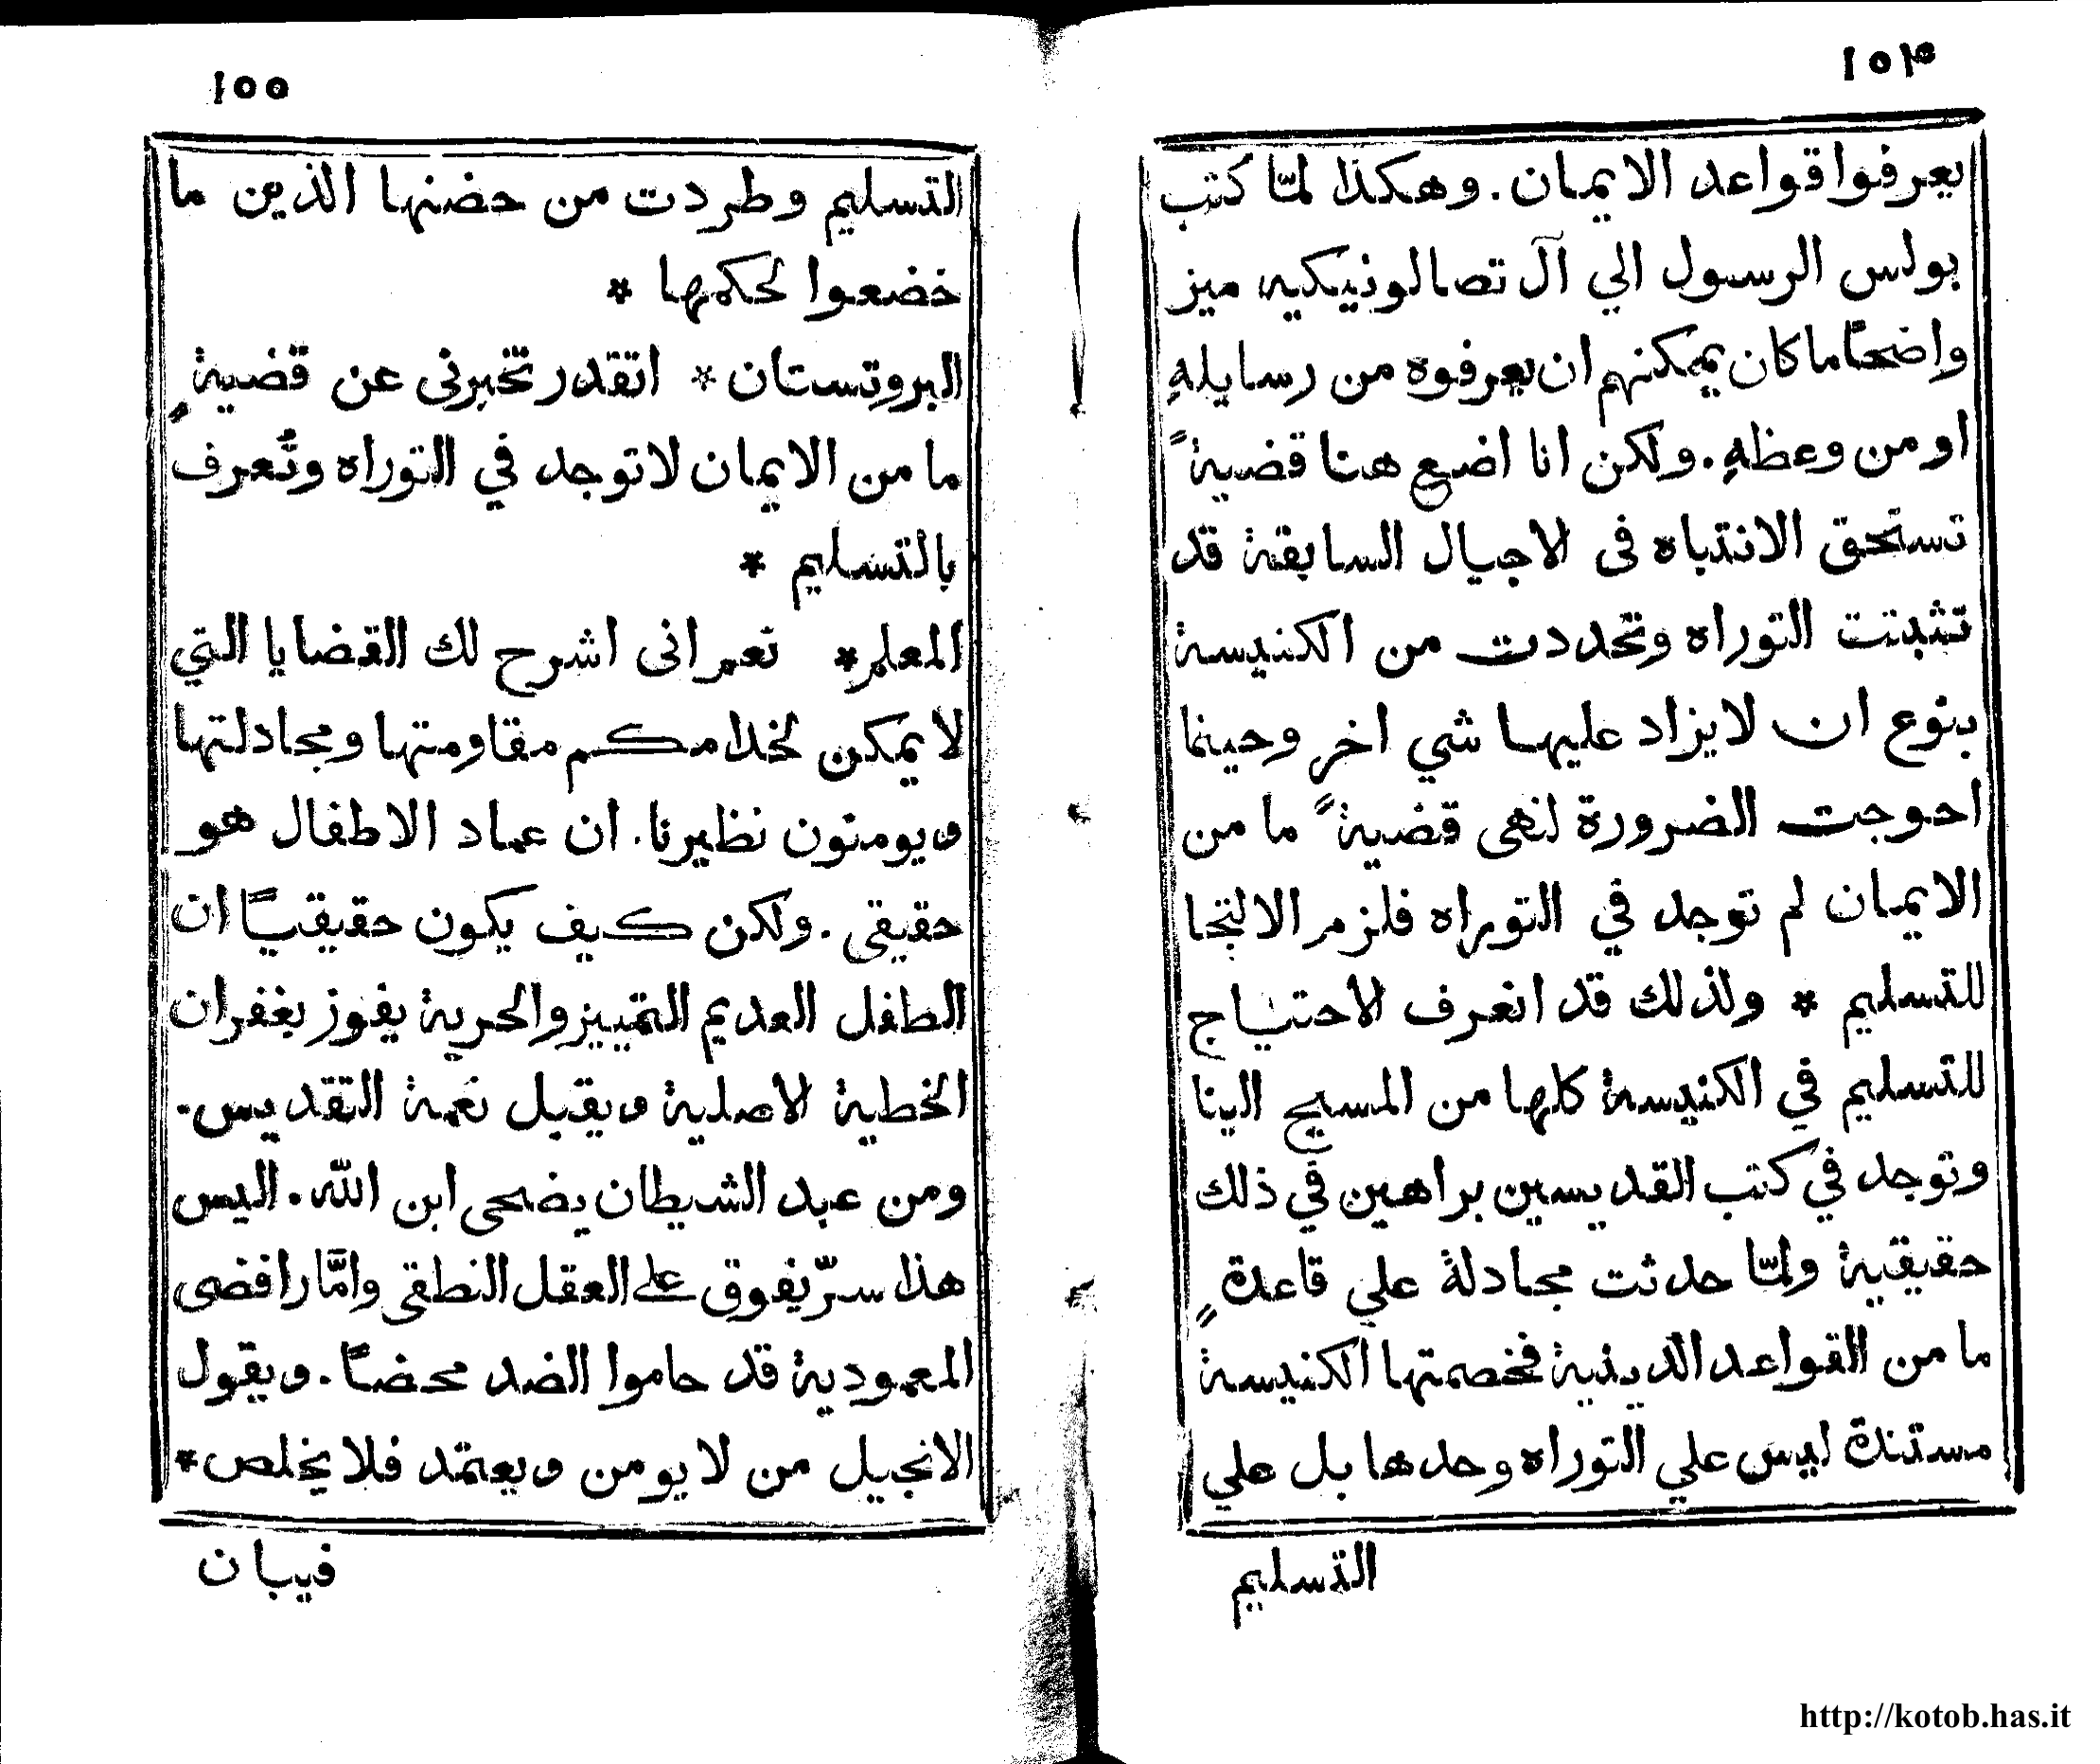 ١٥٤
يعرفوا قواعد الايمان. وهكذا لمّا كتب
بولس الرسول الي آل تصالونيكيه ميز
واضحًا ما كان يمكنهم ان يعرفوه من رسايلهِ
او من وعظهِ. ولكن انا اضع هنا قضيةً
تستحق الانتباه في الاجيال السابقة قد
تثبتت التوراه وتحددت من الكنيسة
بنوع ان لا يزاد عليها شي اخر وحينما
احوجت الضرورة لنهي قضيةً ما من
الايمان لم توجد في التوراه فلزم الالتجا
للتسليم * ولذلك قد انعرف الاحتياج
للتسليم في الكنيسة كلها من المسيح الينا
وتوجد في كتب القديسين براهين في ذلك
حقيقية ولمّا حدثت مجادلة علي قاعدةٍ
ما من القواعد الدينية فخصمتها الكنيسة
مستندة ليس علي التوراه وحدها بل علي
التسليم
١٥٥
التسليم وطردت من حضنها الذين ما
خضعوا لحكمها *
البروتستان * اتقدر تخبرني عن قضيةٍ
ما من الايمان لا توجد في التوراه وتُعرف
بالتسليم *
المعلم * نعم اني اشرح لك القضايا التي
لا يمكن لخدامكم مقاومتها ومجادلتها
ويومنون نظيرنا. ان عماد الاطفال هو
حقيقي. ولكن كيف يكون حقيقيًا ان
الطفل العديم التمييز والحرية يفوز بغفران
الخطية الاصلية ويقبل نعمة التقديس.
ومن عبد الشيطان يضحي ابن الله. اليس
هذا سرّ يفوق علي العقل النطقي وامَّا رافضي
المعمودية قد حاموا الضد محضًا. ويقول
الانجيل من لا يومن ويعتمد فلا يخلص *
فيبان
http://kotob.has.it